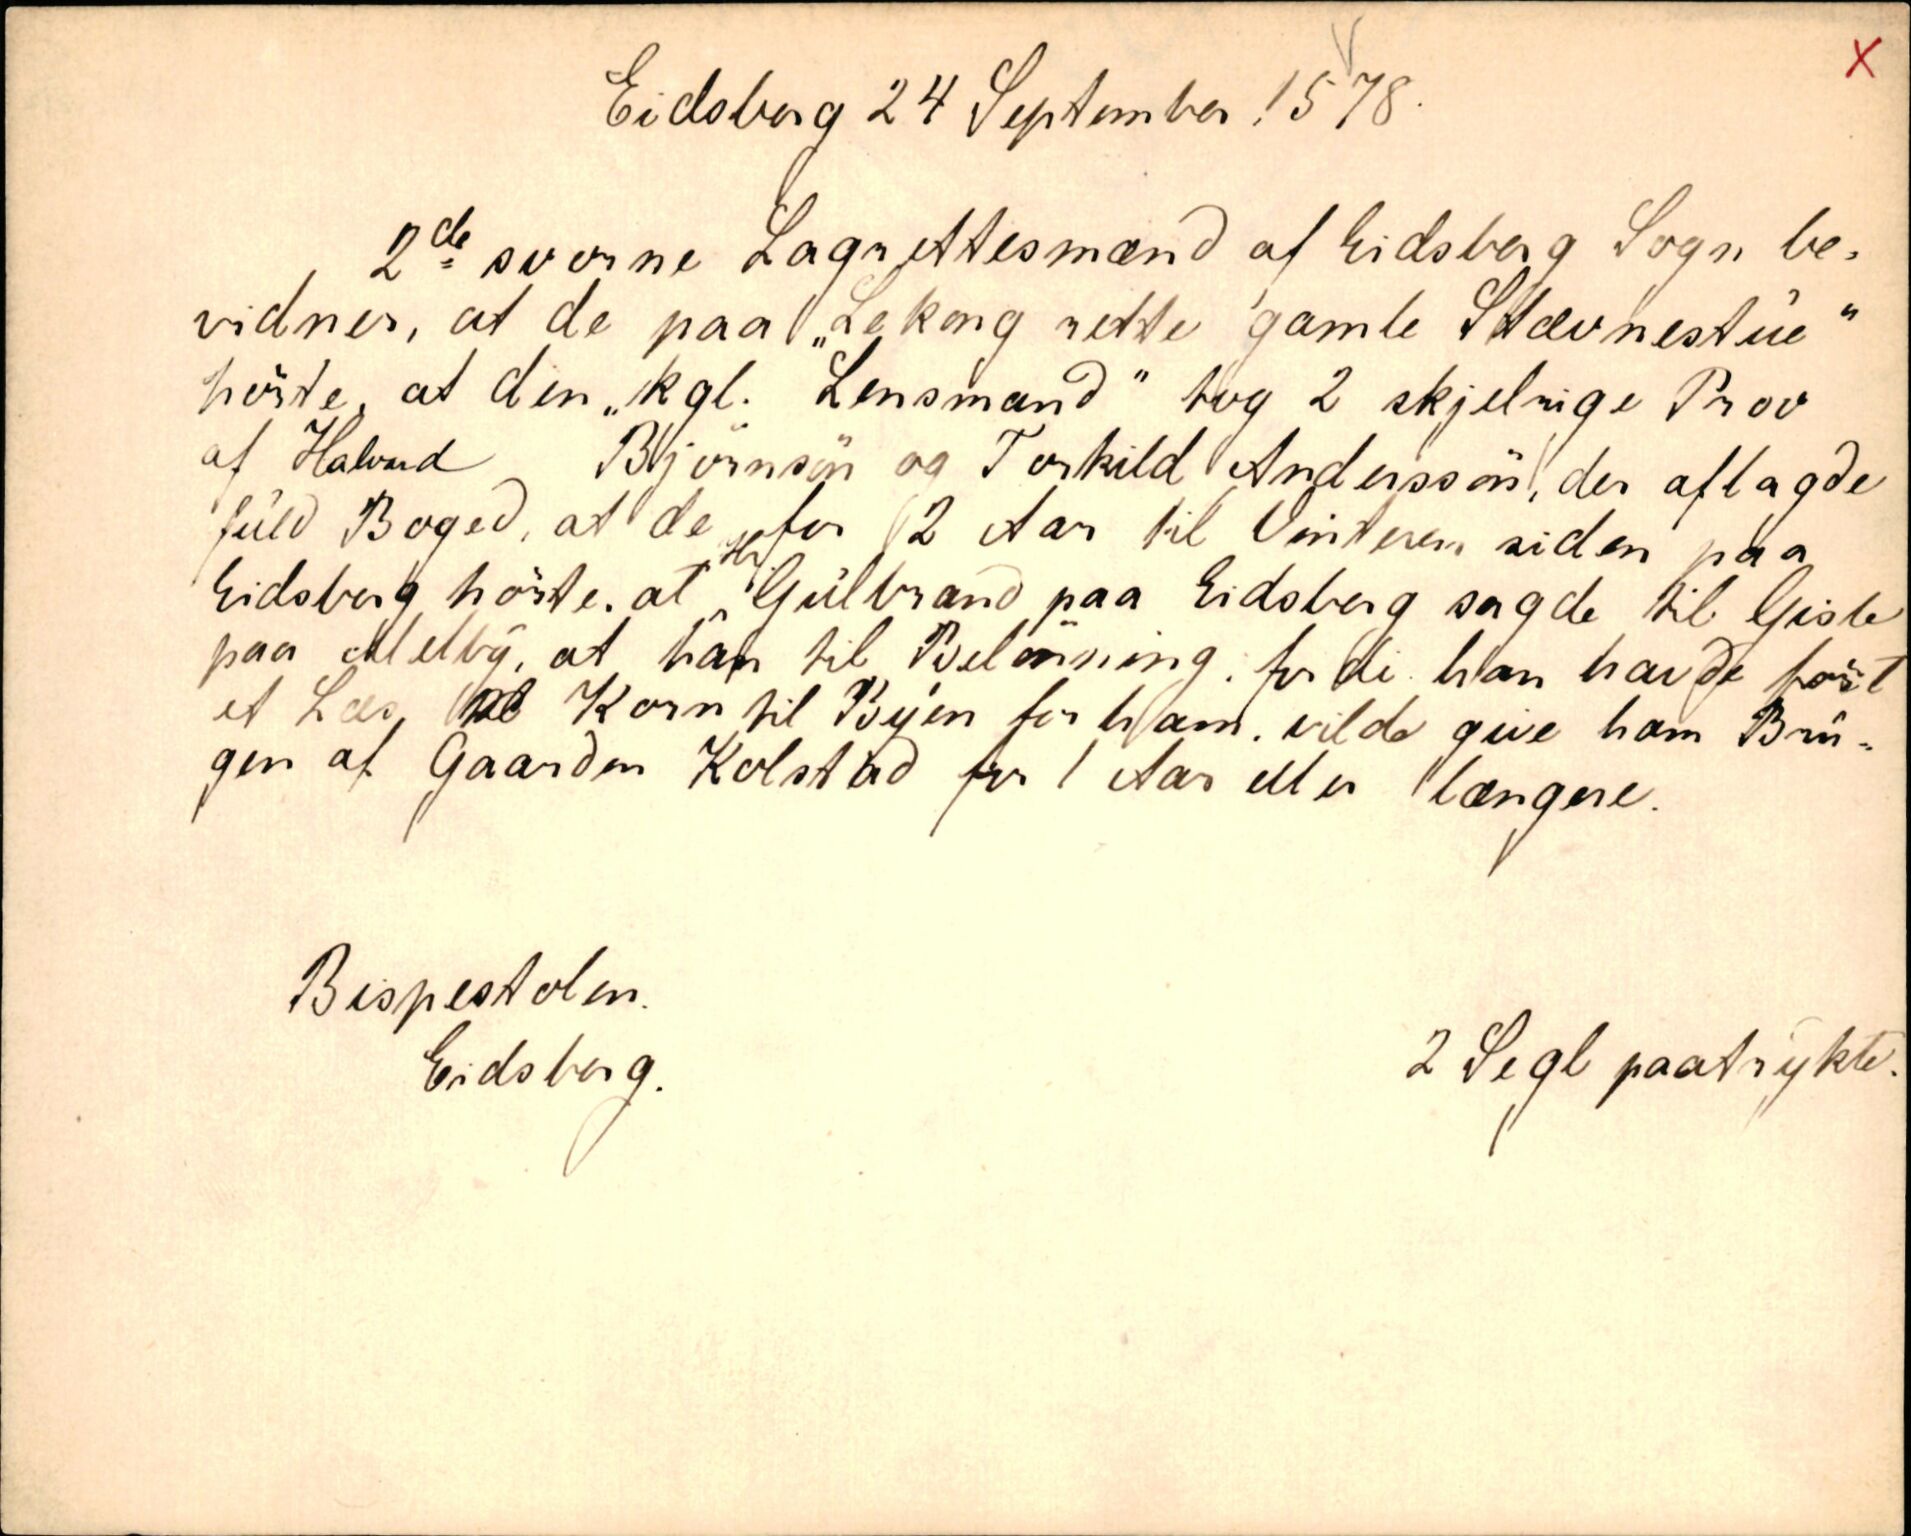 Eidsberg 24 September 1578.
2de svorne Lagrettesmænd af Eidsberg Sogn be-
vidner, at de paa „Lekong rette gamle Stævnestue"
hörte, at den „kgl. Lensmand" tog 2 skjelrige Prov
af Halvard Björnsön og Torkild Anderssön, der aflagde
fuld Boged, at de for 2 Aar til Vinteren siden paa
Eidsberg hörte, at Hr Gulbrand paa Eidsberg sagde til Gisle
paa Melby, at han til Belönning, fordi han havde fört
et Læs Korn til Byen for ham, vilde give ham Bru-
gen af Gaarden Kolstad for 1 Aar eller længere.
Bispestolen.
Eidsberg.
2 Segl paatrykte.